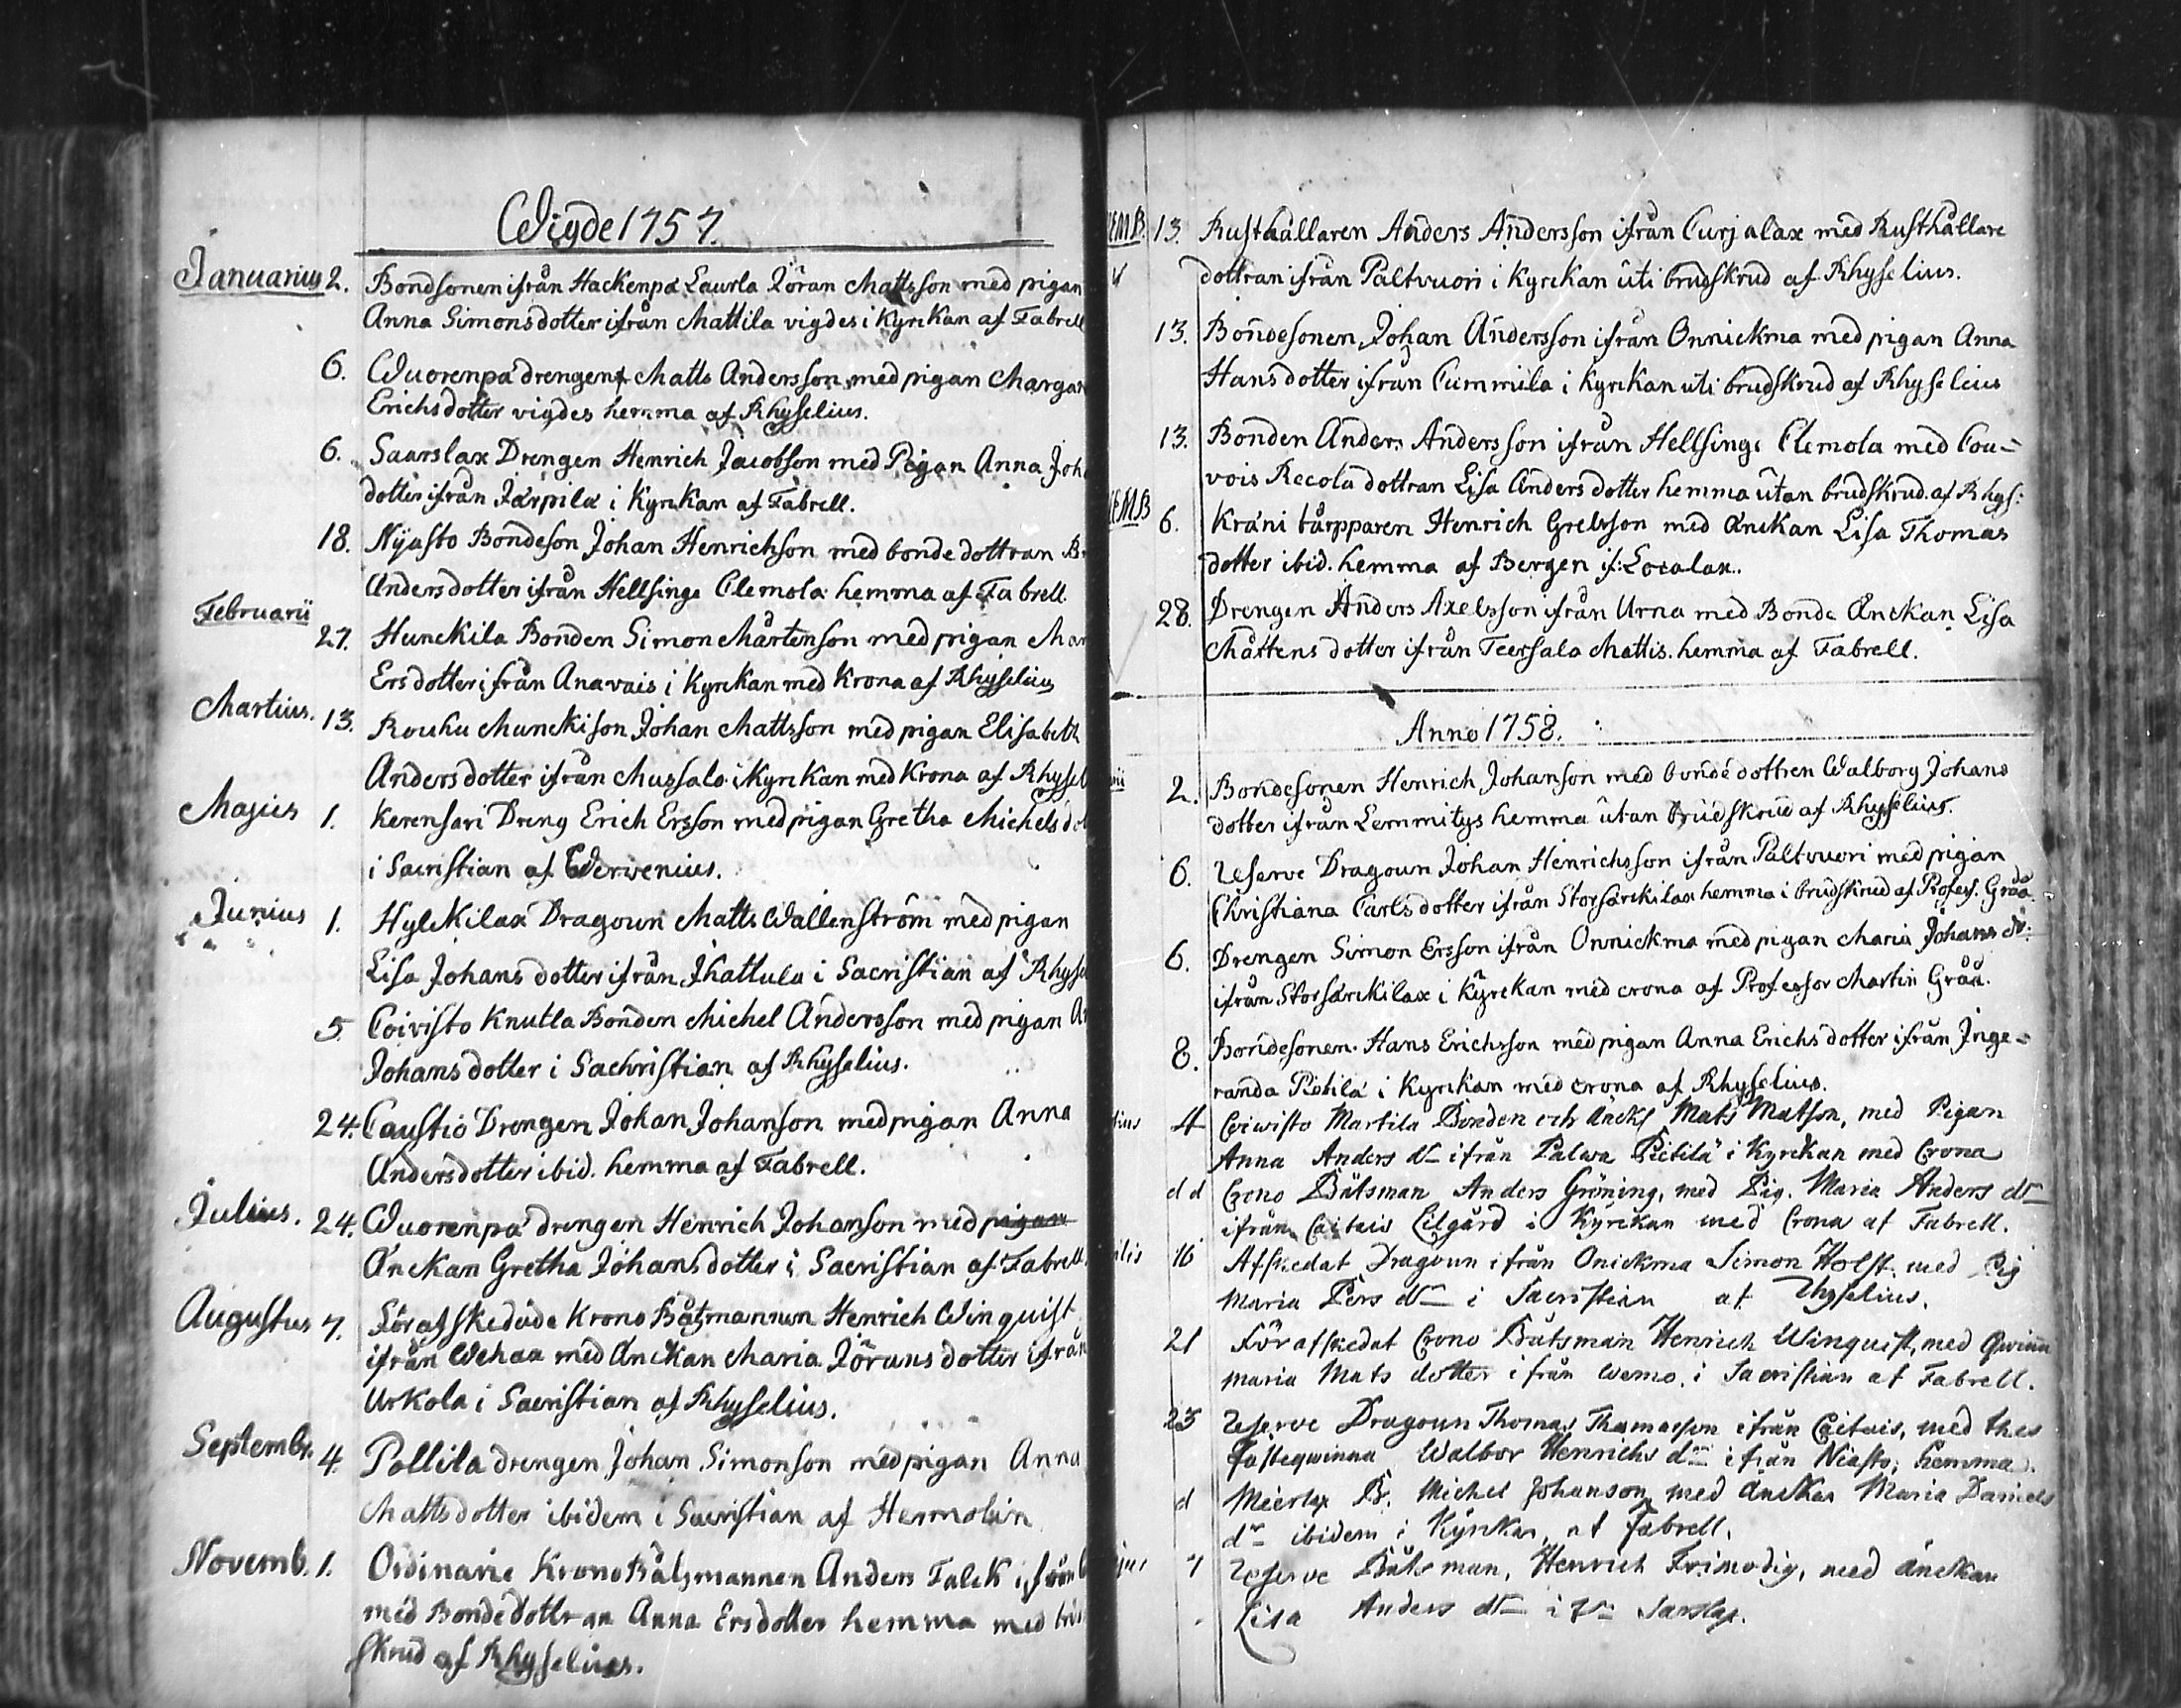 Wigde 1757.
Januarius 2. Bondsonen ifrån Hackenpä Laurla Jöran Mattsson med pigan
Anna Simonsdotter ifrån Mattila vigdes i Kyrckan af Fabrell
6. Wuorenpä drengen Matts Andersson med pigan Margar
Erichsdotter vigdes hemma af Rhyselius.
6. Saarslax Drengen Henrich Jacobson med Pigan Anna Joh
dotter ifrån Järpila i Kyrckan af Fabrell.
18. Nyästo Bondeson Johan Henrichson med bonde dottran Br
Andersdotter ifrån Hellsinge Clemola hemma af Fabrell
Februarii
27. Hunckila Bonden Simon Mårtenson med pigan Mar
Ersdotter ifrån Anavais i Kyrckan med Krona af Rhyselius
Martius. 13. Rouhu Munckison Johan Mattsson med pigan Elisabeth
Andersdotter ifrån Mussalo i Kyrckan med Krona af Rhysel
Majus 1. Kerensari Dreng Erich Ersson med pigan Gretha Michels dot
i Sacristian af Wervenius.
Junius 1. Hylckilax Dragoun Matts Wallenström med pigan
Lisa Johans dotter ifrån Ihattula i Sacristian af Rhyse
5 Coivisto Knutla Bonden Michel Andersson med pigan An
Johansdotter i Sachristian af Rhyselius.
24. Caustio Drengen Johan Johanson med pigan Anna
Andersdotter ibid. hemma af Fabrell.
Julius. 24. Wuorenpä drengen Henrich Johanson med pigan
Änckan Gretha Johansdotter i Sacristian af Fabrell
Augustus 7. Förafskedade Krono Båtzmannen Henrich Winquist
ifrån Wehaa med Änckan Maria Jörans dotter ifrån
Urkola i Sacristian af Rhyselius.
Septembr. 4. Pollila drengen Johan Simonson med pigan Anna
Mattsdotter ibidem i Sacristian af Hermolin
Novemb. 1. Ordinarie Krono Båtzmannen Anders Falck ifrån
med Bondedottran Anna Ersdotter hemma med
skrud af Rhyselius.
EMB. 13. Rusthållaren Anders Andersson ifrån Curjalax med Rusthållare
dottran ifrån Paltvuori i Kyrckan uti brudskrud af Rhyselius.
13. Bondesonen Johan Andersson ifrån Onnickma med pigan Anna
Hansdotter ifrån Cummila i Kyrckan uti brudskrud af Rhyselius
13. Bonden Anders Andersson ifrån Hellsinge Clemola med Cou-
vois Recola dottran Lisa Anders dotter hemma utan brudskrud. af Rhys:
EMB 6. Kräni tårpparen Henrich Grelsson med änckan Lisa Thomas
dotter ibid. hemma af Bergen if: Localax.
28. Drengen Anders Axelsson ifrån Urna med Bonde Änckan Lisa
Mårtens dotter ifrån Teersalo Mattis. hemma af Fabrell.
Anno 1758.
2. Bondesonen Henrich Johanson med bonde dottren Walborg Johans
dotter ifrån Lemmitys hemma utan brudskrud af Rhyselius.
6. Reserve Dragoun Johan Henrichsson ifrån Paltvuori med pigan
Christiana Carls dotter ifrån Storsärckilax hemma i brudskrud af Profess. Gråå
6. Drengen Simon Ersson ifrån Onnickma med pigan Maria Johans dr:
ifrån Storsärckilax i Kyrckan med crona af Professor Martin Gråå.
8. Bondesonen Hans Erichsson med pigan Anna Erichs dotter ifrån Inge-
randa Pietilä i Kyrckan med crona af Rhyselius.
4 Coivisto Martila Bonden och änckl Mats Matson, med Pigan
Anna Anders dr ifrån Palwa Pietilä i Kyrckan med Crona
d d Crono Båtsman Anders Gröning, med Pig. Maria Anders dr
ifrån Caitais Lilgård i Kyrckan med Crona af Fabrell.
ilis 16 Afskedat Dragoun ifrån Onickma Simon Holst. med Pig
Maria Pers dr i Sacristian af Rhyselius.
21 För afskedat Crono Båtsman Henrich Winquist, med Qwinn
Maria Mats dotter ifrån Wemo. i Sacristian af Fabrell.
23 Reserve Dragoun Thomas Thomasson ifrån Caitais, med thes
Fästeqwinna Walbor Henrichs dr ifrån Niästo, hemma.
d Meerlax B. Michel Johanson med änckan Maria Daniels
dr ibidem i Kyrckan af Fabrell.
jus 7 Reserve Båtsman, Henrich Frimodig, med änckan
Lisa Anders dr i fr Sarslax.